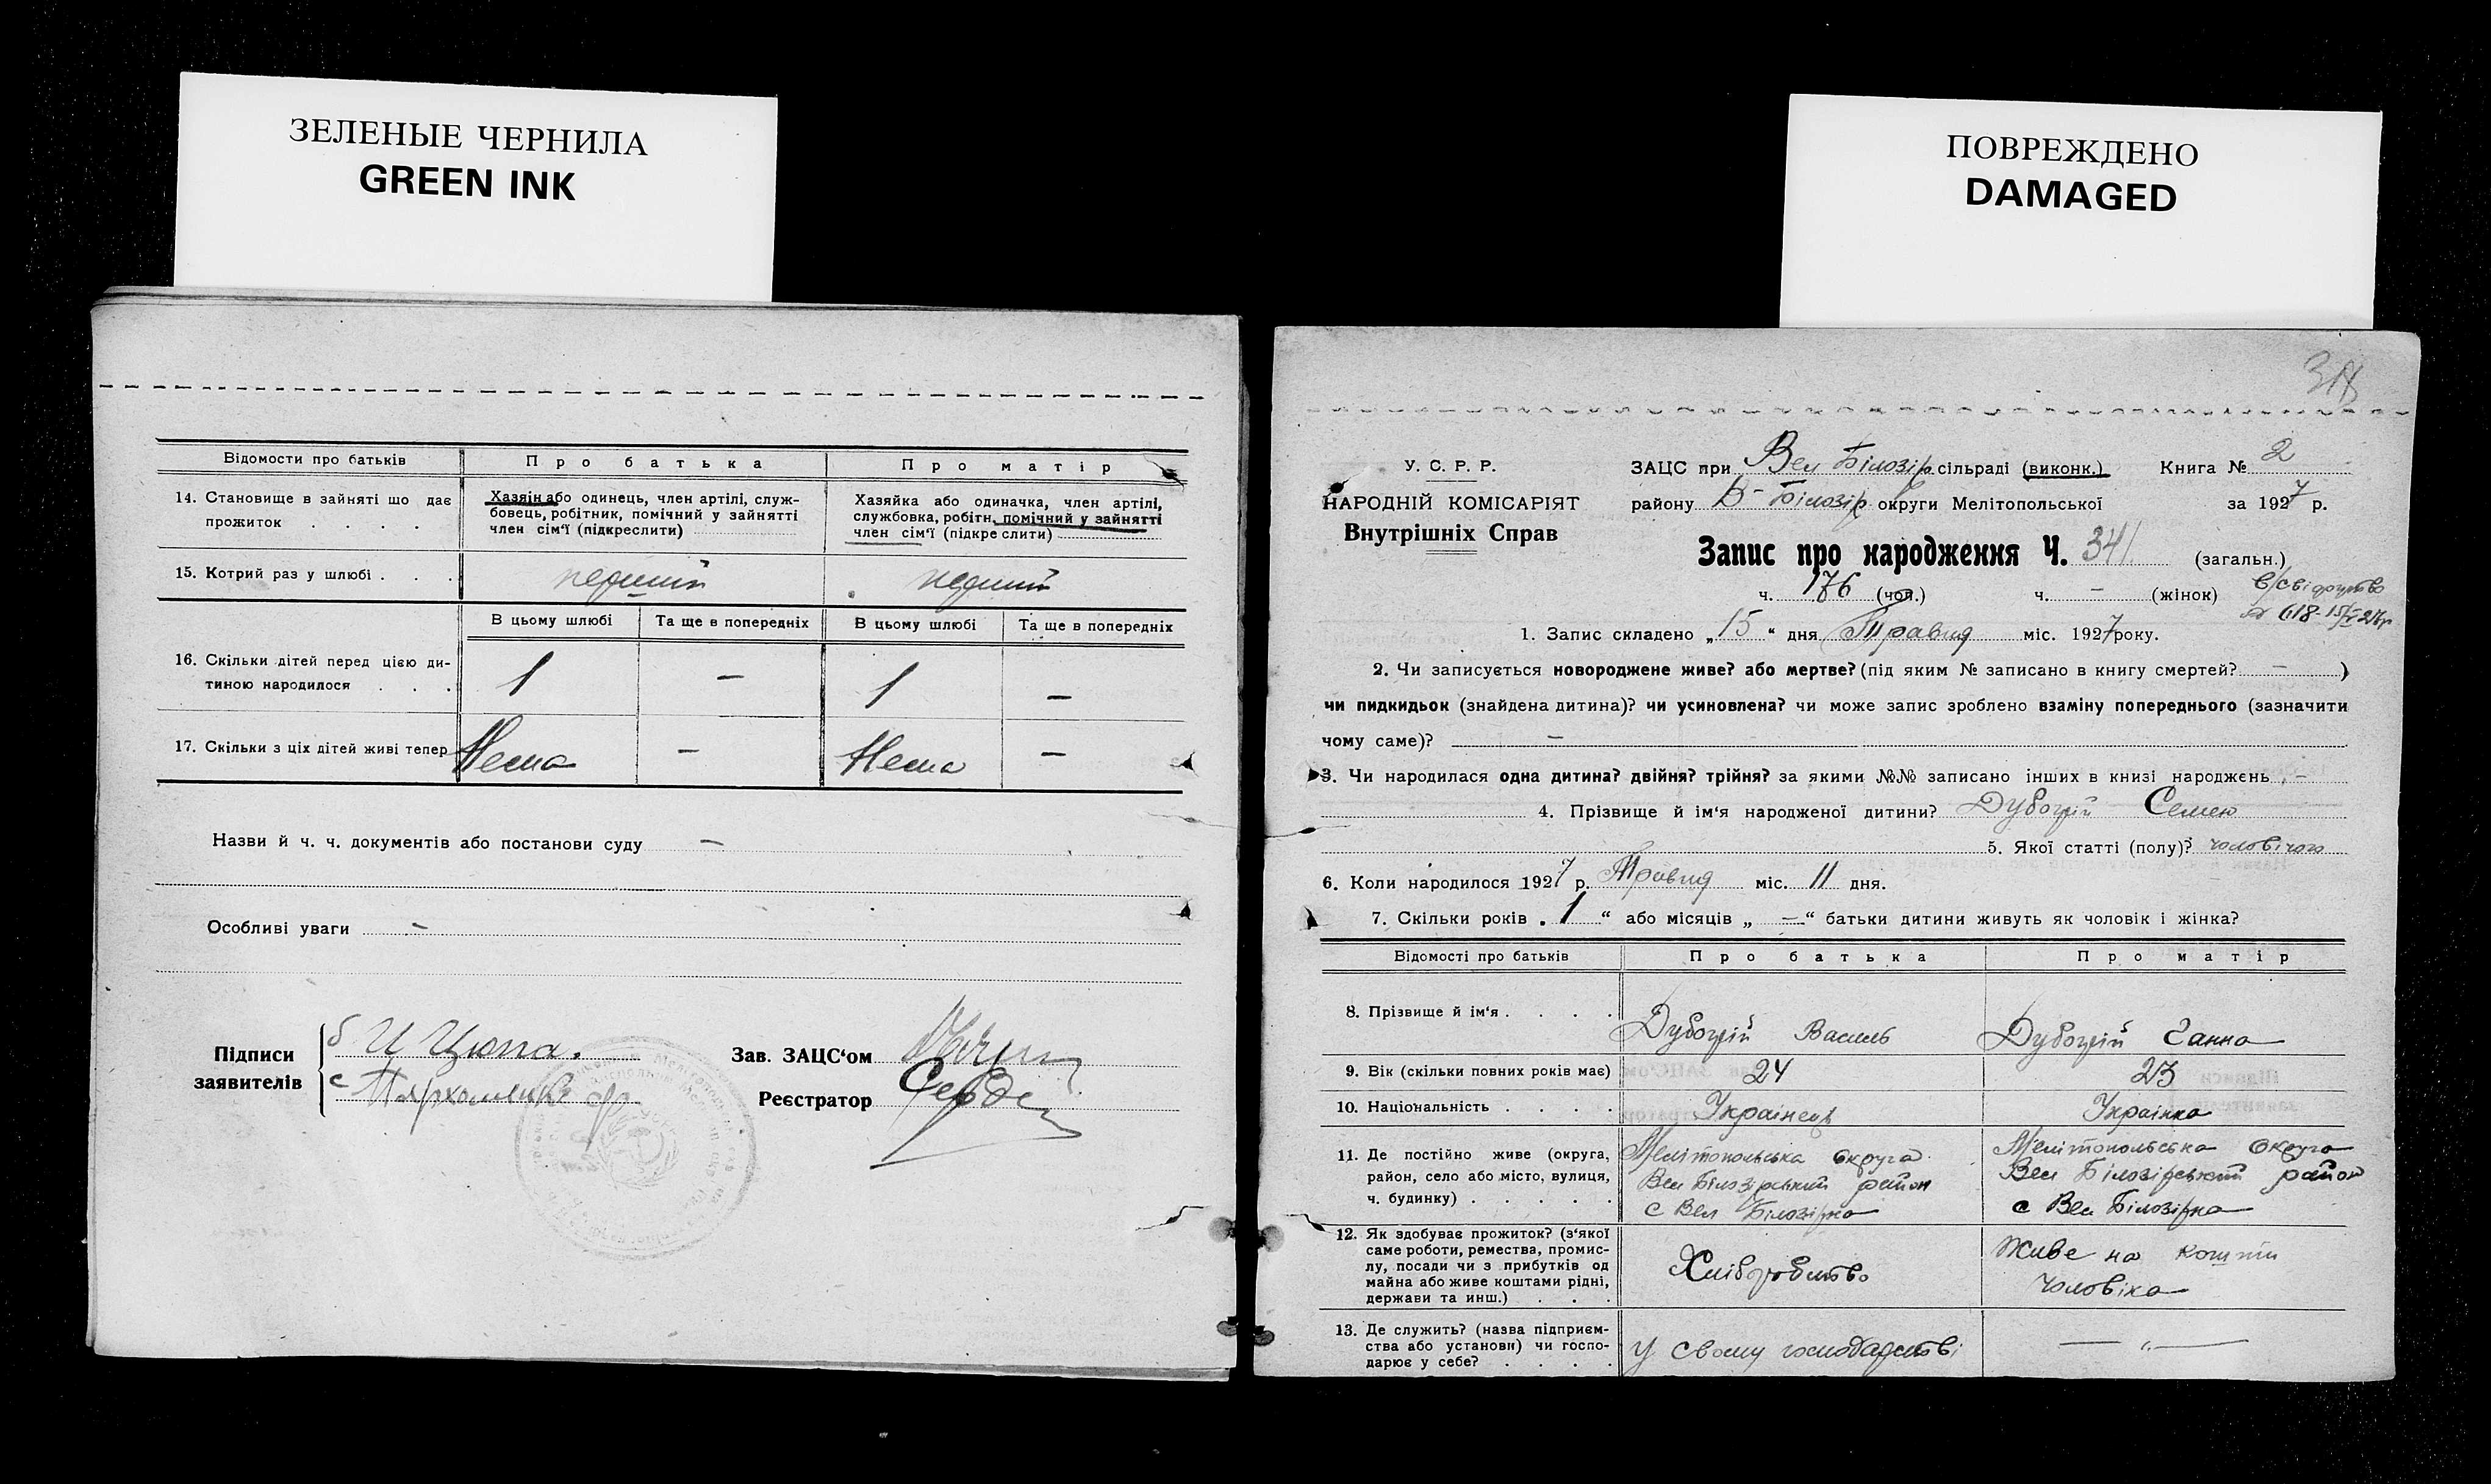 ЗЕЛЕНЫЕ ЧЕРНИЛА
GREEN INK
ПОВРЕЖДЕНО
DAMAGED
Відомости про батьків
Про батька
Про матір
14. Становище в зайняті що дає
прожиток . . . .
Хазяін або одинець, член артілі, служ-
бовець, робітник, помічний у зайнятті
член сім'ї (підкреслити)
Хазяйка або одиначка, член артілі,
службовка, робітн. помічний у зайнятті
член сім'ї (підкреслити)
15. Котрий раз у шлюбі . . .
перший
перший
В цьому шлюбі
Та ще в попередніх
В цьому шлюбі
Та ще в попередніх
16. Скільки дітей перед цією ди-
тиною народилося . . .
1
—
1
—
17. Скільки з ціх дітей живі тепер
Нема
—
Нема
—
Назви й ч. ч. документів або постанови суду —
Особливі уваги —
Підписи
заявителів
б И Цюпа.
с
Зав. ЗАЦС'ом
Реєстратор
У. С. Р. Р.
НАРОДНІЙ КОМІСАРІЯТ
Внутрішніх Справ
ЗАЦС при Вел Білозір. сільраді (виконк.) Книга № 2
району В-Білозір округи Мелітопольської за 1927 р.
Запис про народження Ч. 341. (загальн.)
ч. 176 (чол.) ч. — (жінок)
в/свідоцтво
618-15/V-27р
1. Запис складено „15" дня Травня міс. 1927 року.
2. Чи записується новороджене живе? або мертве? (під яким № записано в книгу смертей? — )
чи пидкидьок (знайдена дитина)? чи усиновлена? чи може запис зроблено взаміну попереднього (зазначити
чому саме)? —
3. Чи народилася одна дитина? двійня? трійня? за якими №№ записано інших в книзі народжень —
4. Прізвище й ім'я народженої дитини? Дубогрій Семен
5. Якої статті (полу)? чоловічого
6. Коли народилося 1927 р. Травня міс. 11 дня.
7. Скільки років „1" або місяців „—" батьки дитини живуть як чоловік і жінка?
Відомості про батьків
Про батька
Про матір
8. Прізвище й ім'я . . . .
Дубогрій Василь
Дубогрій Ганна
9. Вік (скільки повних років має)
24
23
10. Національність . . . .
Українець
Українка
11. Де постійно живе (округа,
район, село або місто, вулиця,
ч. будинку) . . . . .
Мелітопольська округа
Вел Білозірський район
с Вел Білозірка
Мелітопольська округа
Вел Білозірський район
с Вел Білозірка
12. Як здобуває прожиток? (з'якої
саме роботи, ремества, промис-
лу, посади чи з прибутків од
майна або живе коштами рідні,
держави та инш.) . . .
Хліборобство
Живе на кошти
чоловіка
13. Де служить? (назва підприєм-
ства або установи) чи госпо-
дарює у себе? . . . .
У своему господарстві
— „ —